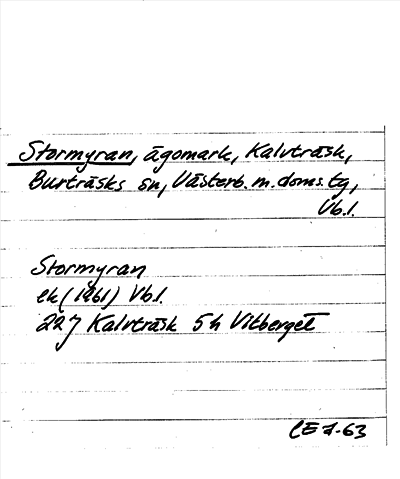 Stormyran, ägomark, Kalvträsk,
Burträsks sn, Västerb. m. doms. tg,
Vb.l.
Stormyran
ek (1961) Vb.l.
22J Kalvträsk 5h Vitberget
CE 7-63